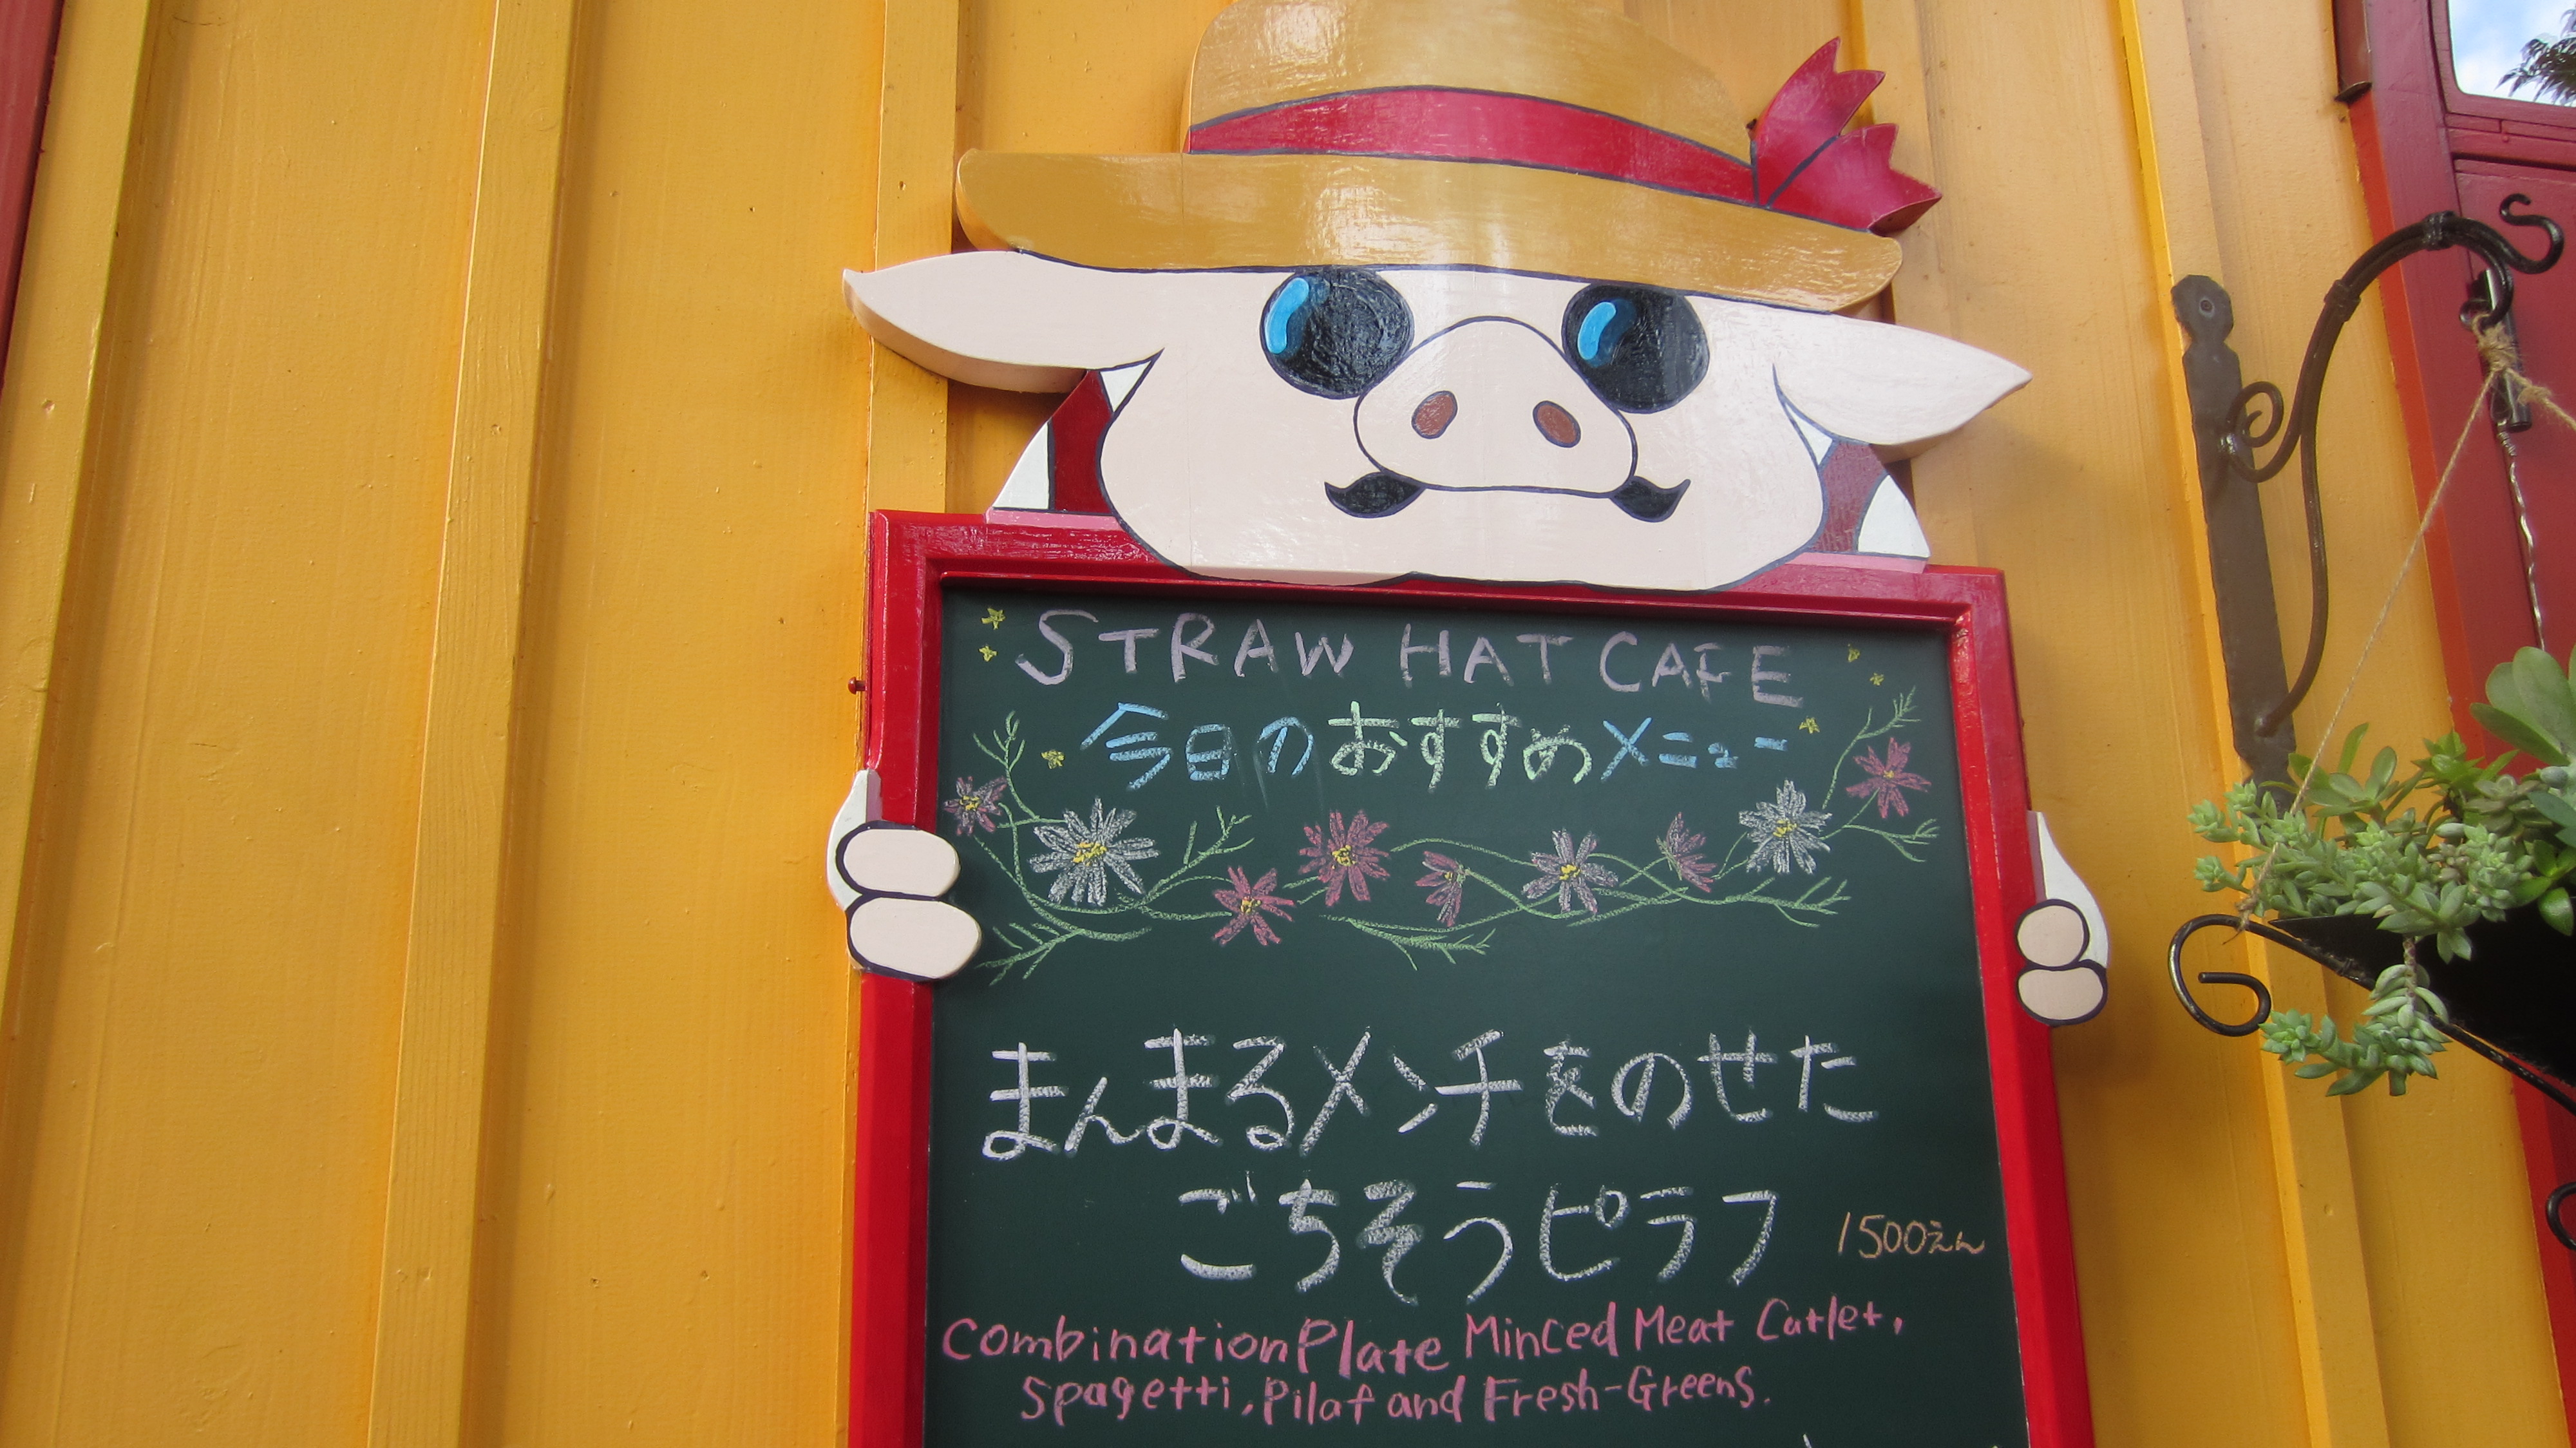 STRAW HAT CAFE
今日のおすすめメニュー
まんまるメンチをのせた
ごちそうピラフ 1500えん
Combination Plate Minced Meat Cutlet,
Spagetti, Pilaf and Fresh-Greens.